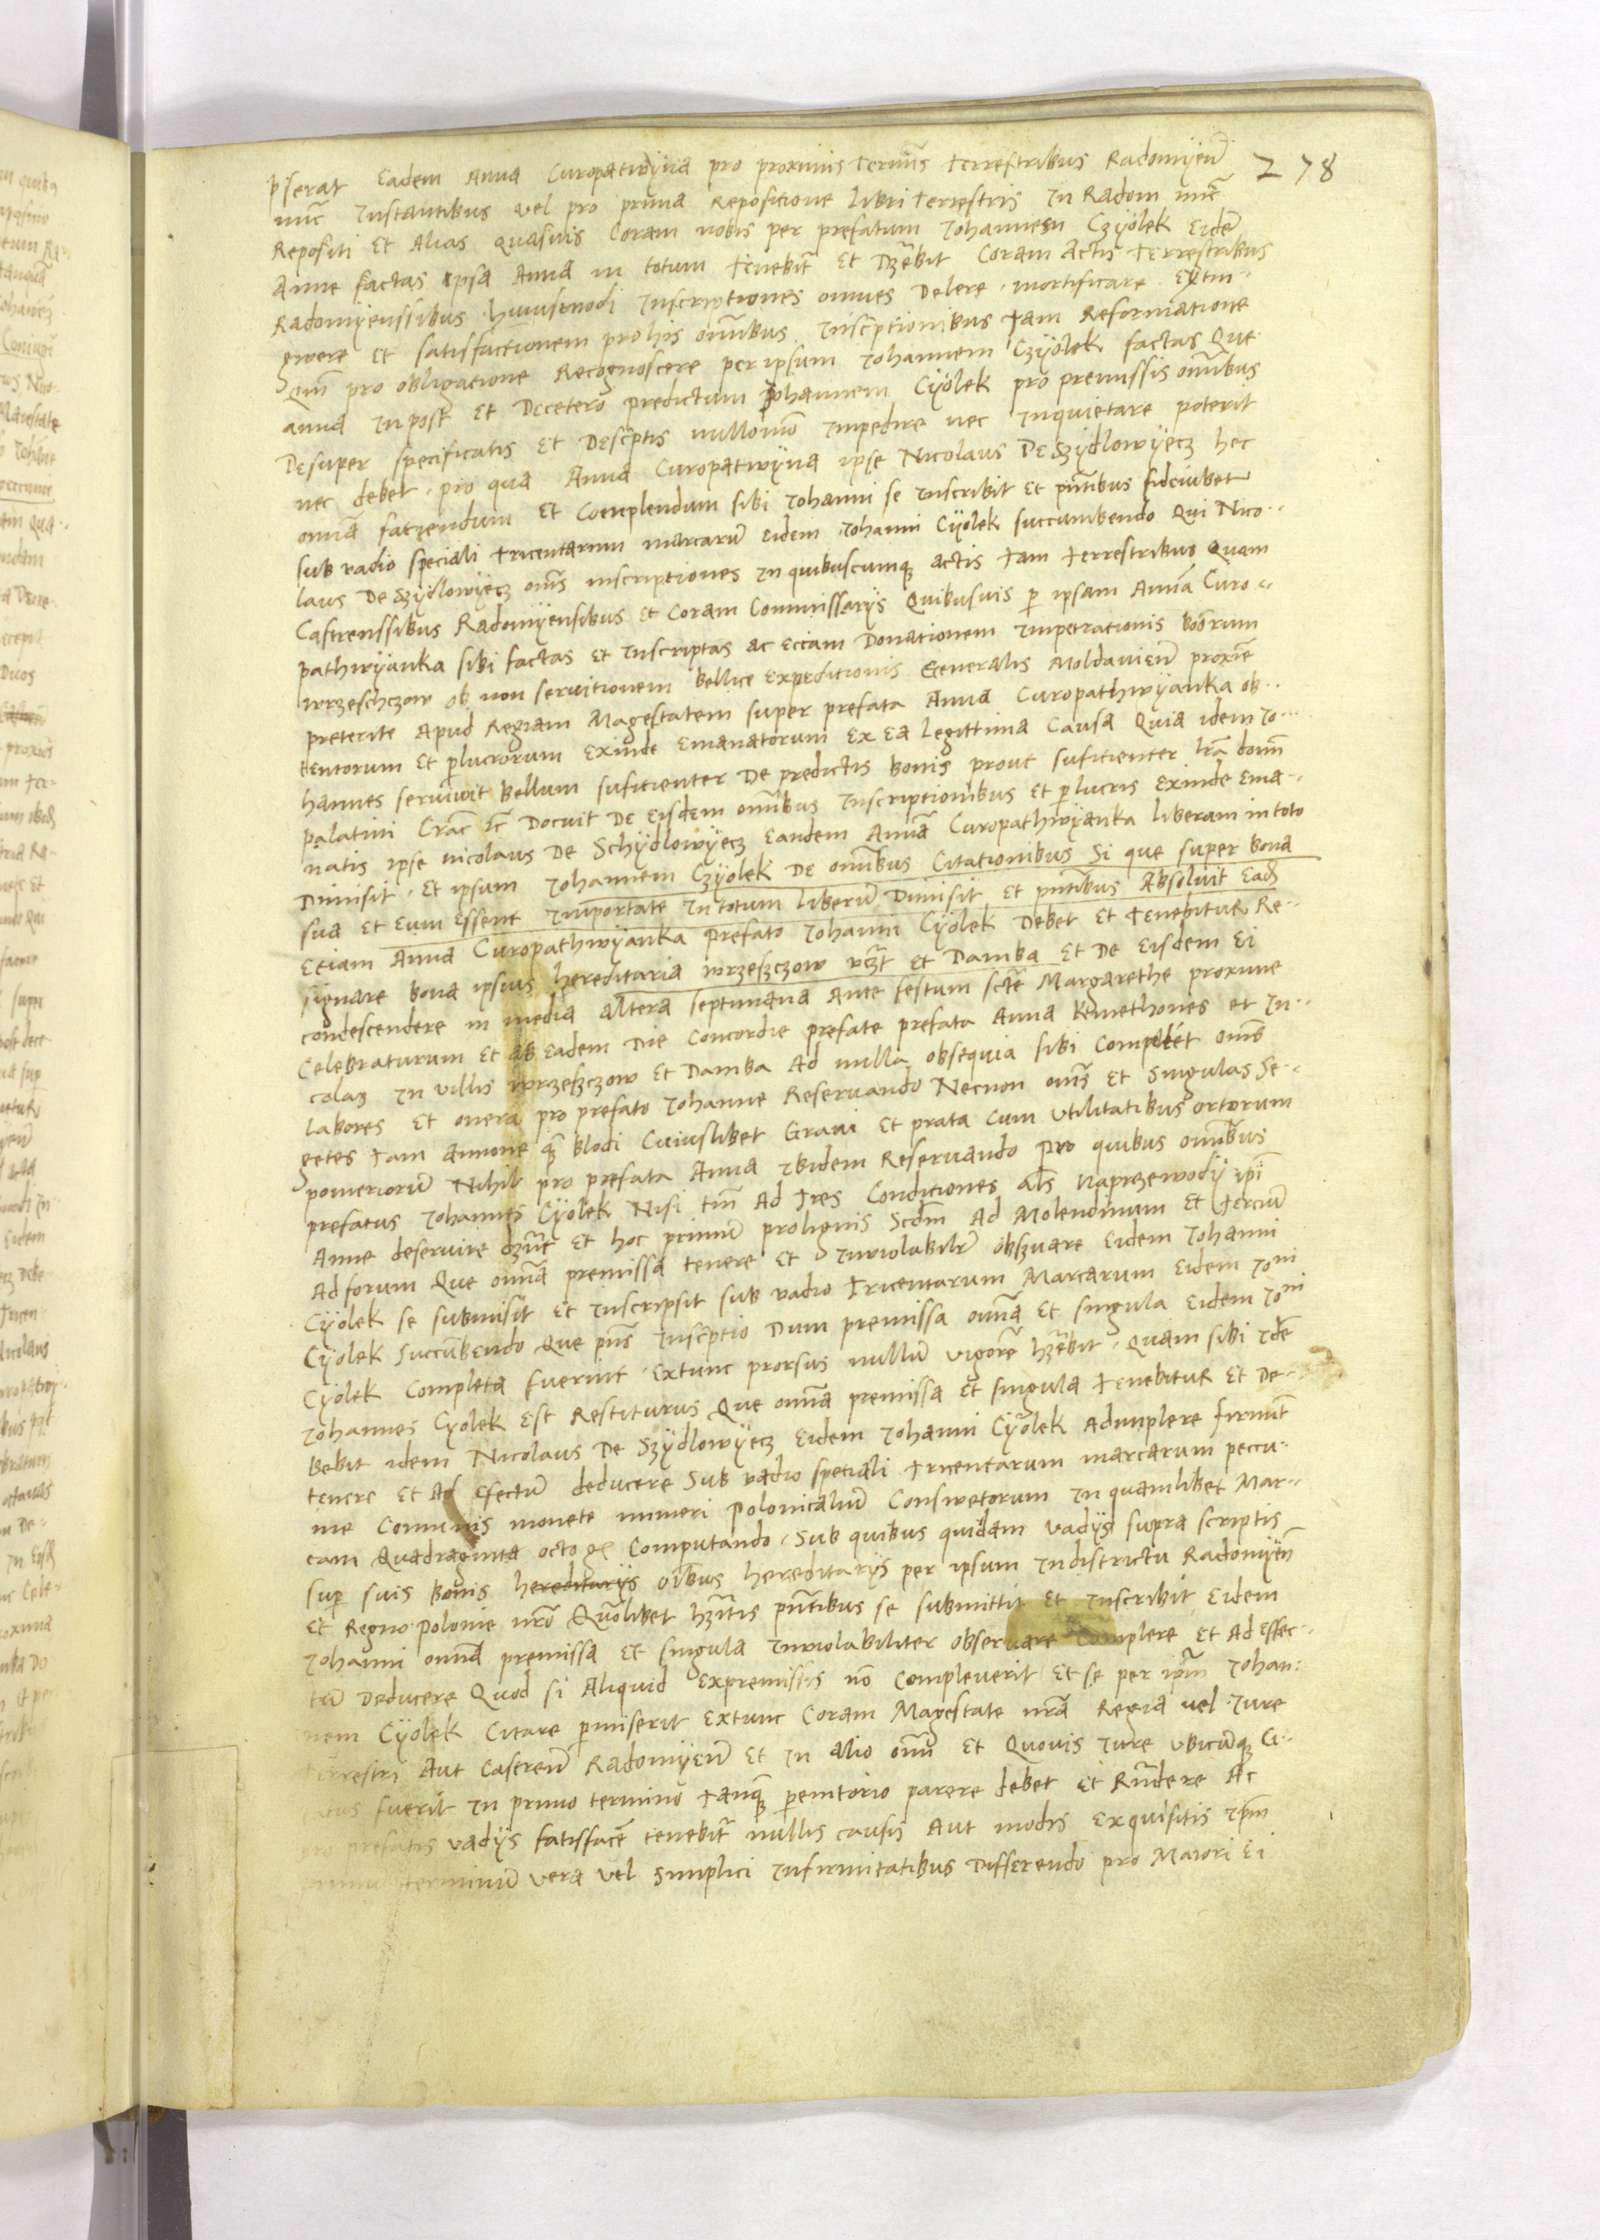 278
pserat Eadem Anna Curopatwÿna pro proximis terminis terrestribus Radomÿen̄
nunc Instantibus vel pro prima Repositione Libri terrestris In Radom nunc
Repositi Et Alias quasuis Coram nobis per prefatum Johannem Czÿolek Eidem
Anne factas Ipsa Anna in totum tenebit̄ Et Dzebit Coram Actis Terrestribus
Radomÿenssibus huiusmodi Inscriptiones omnes Delere mortificare Extin-
gwere Et satisfactionem pro his om̄ibus Inscp̄tionibus tam Reformatione
Qm̄ pro obligatione Recognoscere per ipsum Johannem Czÿolek factas Que
anna In post Et Decetero predictum Johannem Cÿolek pro premissis om̄ibus
Desuper specificatis Et Descp̄tis nullomo Impedire nec Inquietare poterit
nec debet pro qua Anna Curopatwÿna ipse Nicolaus De Szÿdlowÿecz hec
om̄ia faciendum Et Complendum sibi Johanni se Inscribit Et pn̄tibus fideiubet
sub vadio speciali tricentarum marcarum eidem Johanni Cÿolek succumbendo Qui Nico-
laus De Szÿdlowÿecz om̄s inscriptiones In quibuscumq̄ actis tam terrestribus Quam
Castrenssibus Radomÿensibus Et Coram Commissarÿs Quibusuis p̄ ipsam Annā Curo-
pathwÿanka sibi factas Et Inscriptas ac Eciam Donationem Impetrationis bonorum
wrzeschczow ob non seruitionem bellice Expeditionis Generalis Moldauien̄ proxime
preterite Apud Regiam Magestatem super prefata Anna Curopathwÿanka ob-
tentorum Et p̄lucrorum Exinde Emanatorum Ex Ea legittima Causa Quia idem Jo-
hannes seruiuit bellum suficienter De predictis bonis prout suficienter lr̄a domī
palatini Crac̄ Ec̄ Docuit De Eisdem om̄ibus Inscriptionibus Et p̄lucris Exinde Ema-
natis ipse nicolaus De Schÿdlowÿecz Eandem Annā Curopathwÿanka liberam in toto
Dimisit Et ipsum Johannem Czÿolek De om̄ibus Citationibus Si que super bona
sua Et Eum Essent Importate In totum liberū Dimisit Et pn̄tibus Absoluit Ead̄
Eciam Anna Curopathwÿanka prefato Johanni Cÿolek Debet Et tenebitur Re-
signare bona ipsius hereditaria wrzeszczow vcz̄t Et Damba Et De Eisdem Ei
condescendere in media altera septimana Ante festum scte Margarethe proxime
Celebraturum Et ab Eadem Die Concordie prefate prefata Anna kmethones et In-
colas In villis wrzeszczow Et Damba Ad nulla obsequia sibi Compellet om̄s
labores Et onera pro prefato Johanne Reservando Necnon om̄s Et Singulas Se-
getes tam annone q̄ bladi Cuiuslibet Grani Et prata Cum vtilitatibus ortorum
pomeriorū Nihil pro prefata Anna Ibidem Reseruando Pro quibus om̄ibus
prefatus Johannes Cÿolek Nisi tm̄ Ad Tres Condiciones als̄ naprzewodÿ ip̄i
Anne deseruire dz̄nt Et hoc primū pro lignis Scd̄m Ad Molendinum Et terciū
Ad forum Que om̄ia premissa tenere Et Inviolabilr̄ obseruare Eidem Johanni
Cÿolek se submisit Et Inscripsit sub vadio Tricentarum Marcarum Eidem Joni
Cÿolek Succūbendo Que pn̄s Inscp̄tio Dum premissa om̄ia Et singula Eidem Joni
Cÿolek Completa fuerint Extunc prorsus nullū vigorē hz̄ebit Quam sibi Idē
Johannes Cÿolek Est Restiturus Que om̄ia premissa Et singula tenebitur Et De-
bebit idem Nicolaus De Szÿdlowÿecz Eidem Johanni Cÿolek Adimplere firmit̄
tenere Et Ad Efectū deducere Sub vadio speciali Tricentarum marcarum peccu-
nie Communis monete numeri polonicaliū Conswetorum In quamlibet Mar-
cam Quadraginta octo gr̄ Computando Sub quibus quidam vadÿs supra scriptis
sup̄ suis bonis hereditarÿs oībus hereditarÿs per ipsum In districtu Radomÿen̄
Et Regno Polonie nr̄o Qualibet hz̄itis pn̄tibus se submittit Et Inscribit Eidem
Johanni om̄ia premissa Et singula Inviolabiliter obseruare Complere Et Ad Effec-
tū Deducere Quod si Aliquid Ex premissis nō Compleuerit Et se per ip̄m Johan-
nem Cÿolek Citare p̄miserit Extunc Coram Magestate nr̄a Regia vel Jure
terrestri Aut Castren̄ Radomÿen̄ Et In Alio om̄i Et Quouis Jure vbicunq̄ Ci-
tatus fuerit In primo termino tanq̄ p̄emtorio parere debet Et Rn̄dere Ac
pro prefatis vadÿs satisfacē tenebit̄ nullis causis Aut modis Exquisitis Ip̄m
terminū vera vel simplici Infirmitatibus Differendo pro Maiori Ei